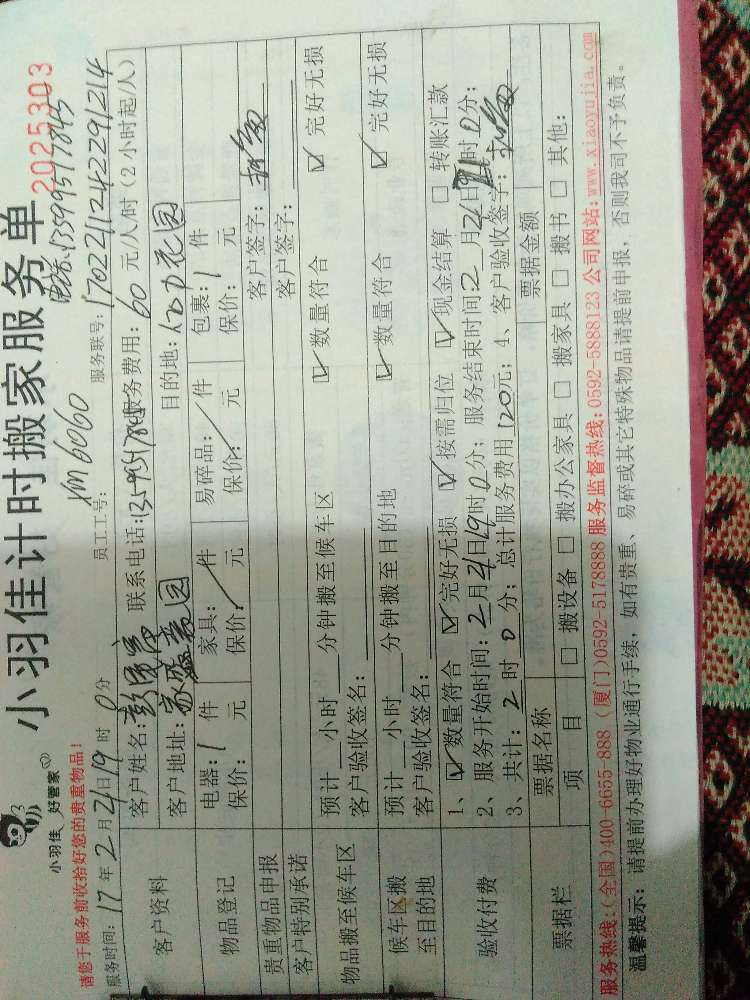 小羽佳 好管家
小羽佳计时搬家服务单
2025303
请您于服务前收拾好您的贵重物品！
电话:13599517845
服务时间: 17年2月21日19时0分 员工工号: XM6060 服务联号: 17022112422291214
客户资料
客户姓名: 联系电话: 服务费用: 60 元/人/时（2小时起/人）
客户地址: 家盛嘉园 目的地: 花园
物品登记
电器: 1 件 家具: / 件 易碎品: / 件 包裹: 1 件
保价: 元 保价: / 元 保价: / 元 保价: 元
贵重物品申报 客户签字:
客户特别承诺 客户签字:
物品搬至候车区
预计 小时 分钟搬至候车区 ☑ 数量符合 ☑ 完好无损
客户验收签名:
候车区搬至目的地
预计 小时 分钟搬至目的地 ☑ 数量符合 ☑ 完好无损
客户验收签名:
验收付费
1、☑ 数量符合 ☑ 完好无损 ☑ 按需归位 ☑ 现金结算 □ 转账汇款
2、服务开始时间: 2月21日19时0分; 服务结束时间: 2月21日 时0分;
3、共计: 2 时 0 分; 总计服务费用 120 元; 4、客户验收签字:
票据栏
票据名称 票据金额
项目 □ 搬设备 □ 搬办公家具 □ 搬家具 □ 搬书 □ 其他:
服务热线:(全国)400-6655-888 (厦门)0592-5178888 服务监督热线:0592-5888123 公司网站:www.xiaoyujia.com
温馨提示: 请提前办理好物业通行手续，如有贵重、易碎或其它特殊物品请提前申报，否则我司不予负责。